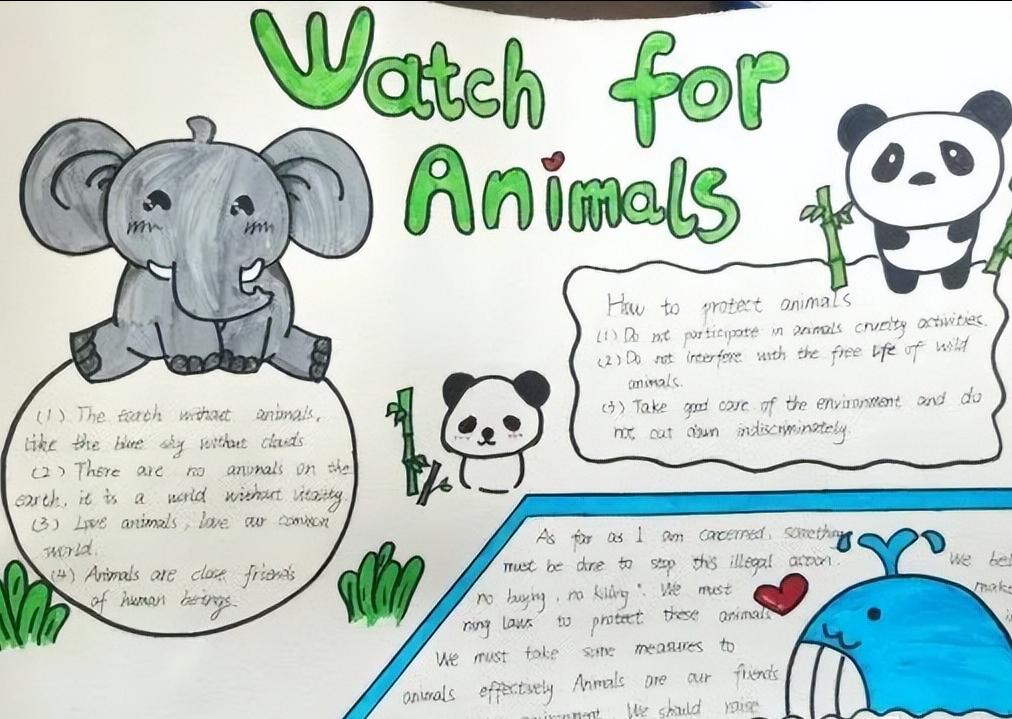 Watch for
Animals
How to protect animals
(1) Do not participate in animals cruelty activities.
(2) Do not interfere with the free life of wild
animals.
(3) Take good care of the environment and do
not cut down indiscriminately.
(1) The earth without animals,
like the blue sky without clouds
(2) There are no animals on the
earth, it is a world without vitality.
(3) Love animals, love our common
world.
(4) Animals are close friends
of human beings.
As far as I am concerned, something
must be done to stop this illegal action.
no buying, no killing". We must
ning laws to protect these animals
We must take some measures to
animals effectively Animals are our friends
We should raise
We
make